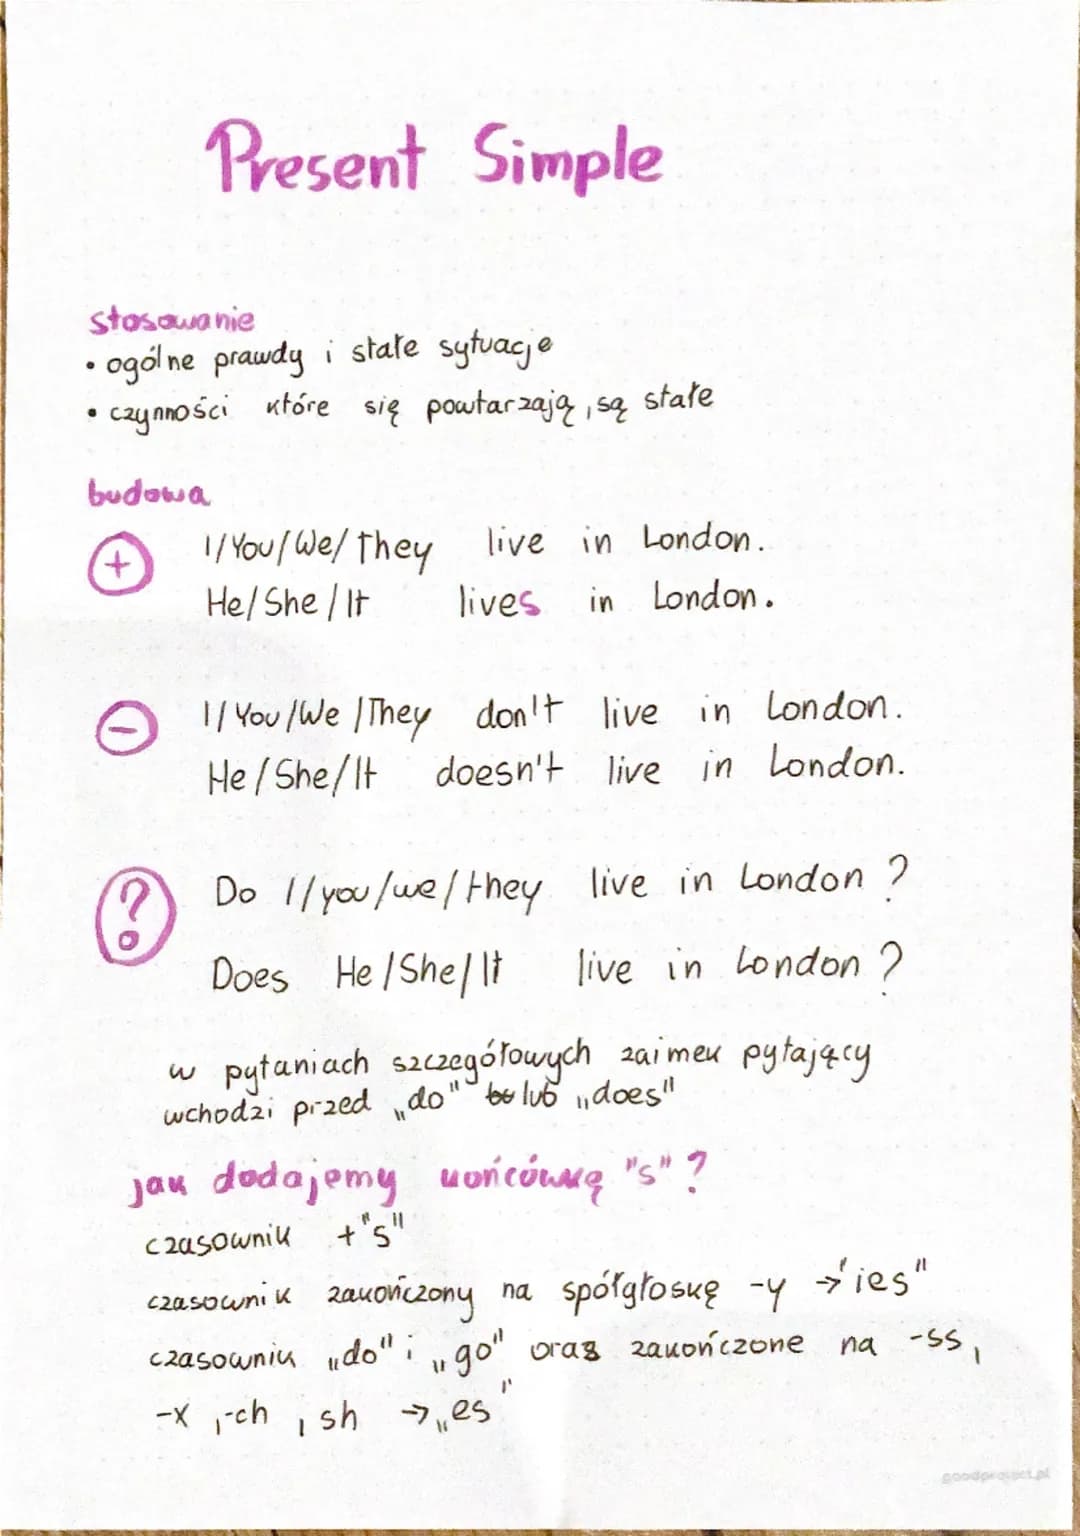 Present Simple
stosowanie
• ogólne prawdy i stałe sytuacje
• czynności które się powtarzają, są stałe
budowa
+ I/You/We/They live in London.
He/She/It lives in London.
- I/You/We/They don't live in London.
He/She/It doesn't live in London.
? Do I/you/we/they live in London?
Does He/She/It live in London?
w pytaniach szczegółowych zaimek pytający
wchodzi przed „do" lub „does"
jak dodajemy końcówkę "s"?
czasownik + "s"
czasownik zakończony na spółgłoskę -y → "ies"
czasownik „do" i „go" oraz zakończone na -ss,
-x, -ch, sh → „es"
goodproject.pl